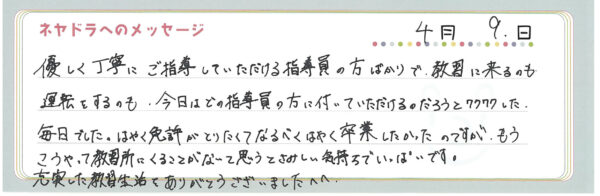 ネヤドラへのメッセージ
4月 9.日
優しく丁寧にご指導していただける指導員の方ばかりで、教習に来るのも
運転をするのも、今日はどの指導員の方に付いていただけるのだろうとワクワクした
毎日でした。はやく免許がとりたくてなるべくはやく卒業したかったのですが、もう
こうやって教習所にくることがないと思うとさみしい気持ちでいっぱいです。
充実した教習生活をありがとうございましたヘヘ.